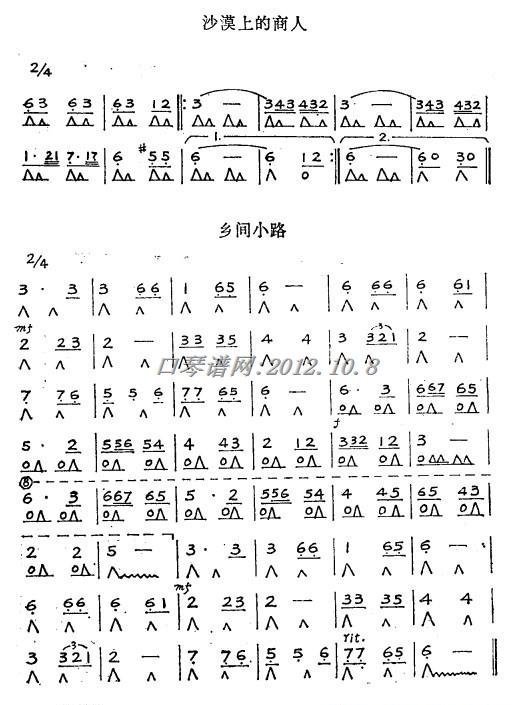 沙漠上的商人
2/4
6 3 6 3 | 6 3 1 2 ‖: 3 — | 343 432 | 3 — | 343 432 |
1. 2.
1 · 21 7 · 17 | 6 #5 5 | 6 — | 6 1 2 :‖ 6 — | 6 0 3 0 ‖
乡间小路
2/4
3 · 3 | 3 6 6 | 1 6 5 | 6 — | 6 6 6 | 6 6 1 |
mf
2 2 3 | 2 — | 3 3 3 5 | 4 4 | 3 3 2 1 | 2 — |
口琴谱网:2012.10.8
7 7 6 | 5 5 6 | 7 7 6 5 | 6 — | 6 · 3 | 667 6 5 |
f
5 · 2 | 556 5 4 | 4 4 3 | 2 1 2 | 332 1 2 | 3 — |
⑧
6 · 3 | 667 6 5 | 5 · 2 | 556 5 4 | 4 4 5 | 6 5 4 3 |
2 2 | 5 — | 3 · 3 | 3 6 6 | 1 6 5 | 6 — |
mf
6 6 6 | 6 6 1 | 2 2 3 | 2 — | 3 3 3 5 | 4 4 |
rit.
3 3 2 1 | 2 — | 7 7 6 | 5 5 6 | 7 7 6 5 | 6 — ‖